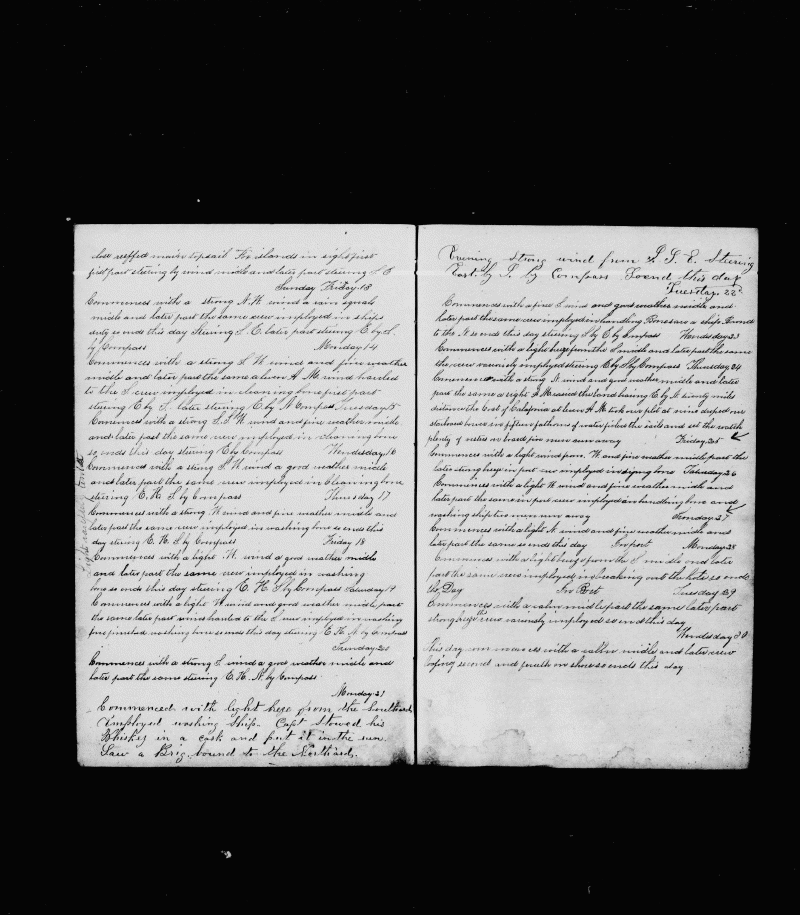 close reeffed main topsail Fox islands in sight first
first part steering by wind midle and later part steering S E
Sunday Friday 13
Commences with a strong N.W. wind a rain squals
midle and later part the same crew imployed in ships
duty so ends this day Steering S. E. later part steering E by S.
by Compass Monday 14
Commences with a strong S. W. wind and fine weather
midle and later part the same aleven A M. wind hauled
to the S crew imployed in cleaning bone first part
steering E by S. later steering E by N Compass Tuesday 15
Commences with a strong S. S W wind and fine weather midle
and later part the same crew imployed in cleaning bone
so ends this day steering E by Compass Wendsday 16
Commences with a string S. W wind a good weather midle
and later part the same crew imployed in cleaning bone
steering E. H. S by Compass Thursday 17
Commences with a strong W. wind and fine weather midle and
later part the same crew imployed in washing bone so ends this
day steering E. H. S by Compass Friday 18
Commences with a light W. wind a good weather midle
and later part the same crew imployed in washing
bone so ends this day steering E. H. S by Compass Saturday 19
Commences with a light W wind and good weather midle part
the same later part wind hauled to the S crew imployed in washing
bone so ends this day steering E H. N by Compass
Sunday 20
Commences with a strong S. wind a good weather midle and
later part the same steering E. H. N. by Compass
Monday 21
Commenced with light here from the Southard
Employed washing Ship. Capt Stowed his
Whiskey in a cask and put it in the run
Saw a Brig bound to the Northard.
Evening Strong wind from S. S. E. Steering
East by S. by Compass So end this day
Tuesday 22
Commences with a fine S wind and good weather midle and
later part the same crew imployed in bundling Bone saw a ship bound
to the N. so ends this day steering S by E by Compass Wendsday 23
Commences with a light breze from the S midle and later part the same
the crew variously imployed steering E by S by Compass Thursday 24
Commences with a string N. wind and good weather midle and later
part the same a eight P M raised the land baring E by N. ninety miles
distance the Cost of California at leven A M. took our pilot at nine droped our
starbord in fifteen fathoms of water filed the sails and set the wach
plenty of visters on board five men run away Friday 25
Commences with a light wind from W. and fine weather midle part the
later string breze in port crew imployed in drying bone Saturday 26
Commences with a light W wind and fine weather midle and
later part the same in port crew imployed in bundling bone and
washing ship two men run away Sunday 27
Commences with a light N. wind and fine weather midle and
later part the same so ends this day In port Monday 28
Commences with a light breze from the S midle and later
part the same crew imployed in breaking out the hole so ends
the Day In Port Tuesday 29
Commences with a calm midle part the same later part
strong breze the crew variously imployed so ends this day
Wendsday 30
this day commences with a calm midle and later crew
second and fourth on shore so ends this day